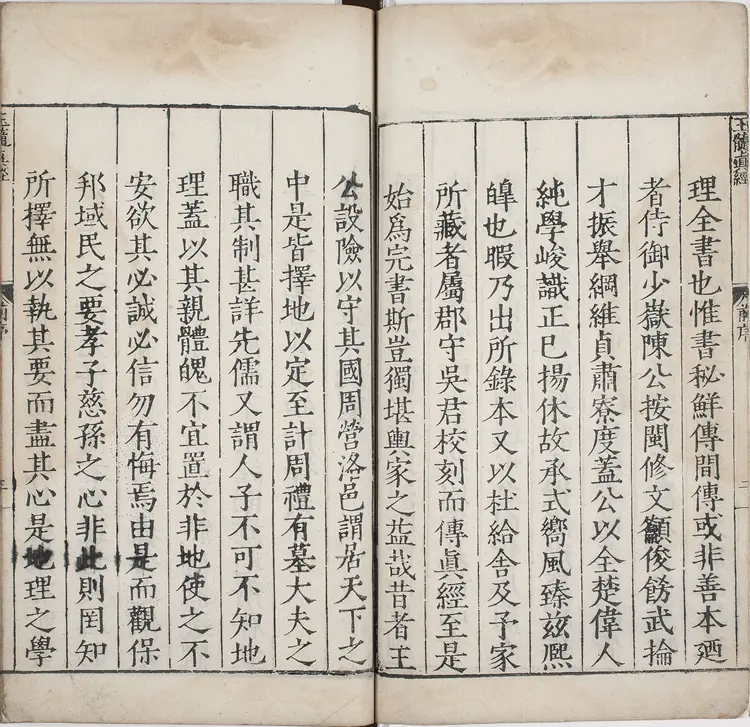 玉髓真經
前序
二
理全書也惟書秘鮮傳間傳或非善本廼
者侍御少嶽陳公按閩修文籲俊飭武掄
才振舉綱維貞肅寮度蓋公以全楚偉人
純學峻識正已揚休故承式嚮風臻兹熈
皡也暇乃出所錄本又以杜給舍及予家
所藏者屬郡守吳君校刻而傳眞經至是
始爲完書斯豈獨堪輿家之益哉昔者王
公設險以守其國周營洛邑謂居天下之
中是皆擇地以定至計周禮有墓大夫之
職其制甚詳先儒又謂人子不可不知地
理蓋以其親體魄不宜置於非地使之不
安欲其必誠必信勿有悔焉由是而觀保
邦域民之要孝子慈孫之心非此則罔知
所擇無以執其要而盡其心是地理之學
玉髓眞經
前序